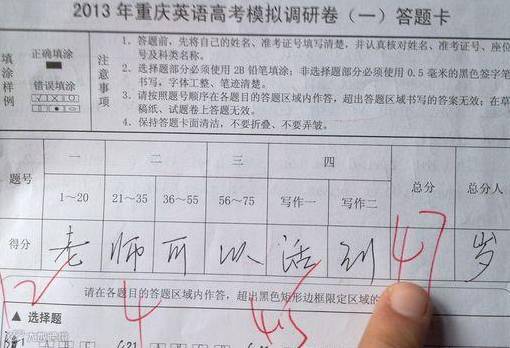 2013年重庆英语高考模拟调研卷（一）答题卡
填涂样例
正确填涂
错误填涂
注意事项
1. 答题前，先将自己的姓名、准考证号填写清楚，并认真核对姓名、准考证号、座位
号及科类名称。
2. 选择题部分必须使用2B铅笔填涂；非选择题部分必须使用0.5毫米的黑色签字笔
书写，字体工整、笔迹清楚。
3. 请按照题号顺序在各题目的答题区域内作答，超出答题区域书写的答案无效；在草
稿纸、试题卷上答题无效。
4. 保持答题卡面清洁，不要折叠、不要弄皱。
题号 一 二 三 四 总分 总分人
1~20 21~35 36~55 56~75 写作一 写作二
得分 老 师 可 以 活 到 47 岁
请在各题目的答题区域内作答，超出黑色矩形边框限定区域的
12 4 4.5
▲ 选择题